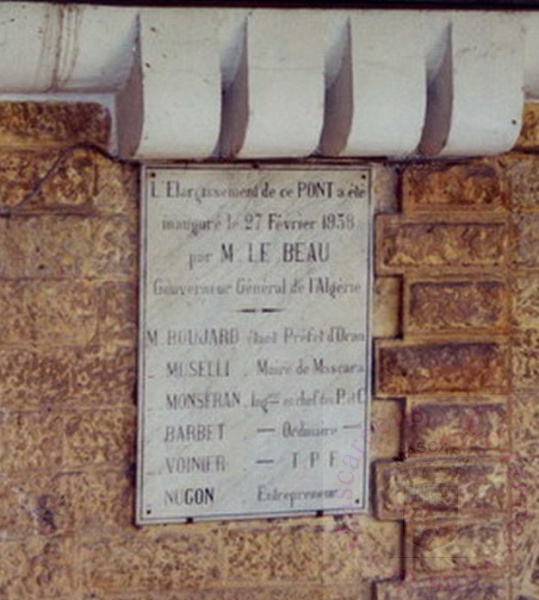 L'Elargissement de ce PONT a été
inauguré le 27 Février 1938
par M. LE BEAU
Gouverneur Général de l'Algérie
M. BOUJARD étant Préfet d'Oran
MUSELLI Maire de Mascara
MONSERAN Ing en chef des P. et C.
BARBET — Ordinaire —
VOINIER — T P E
NUGON Entrepreneur